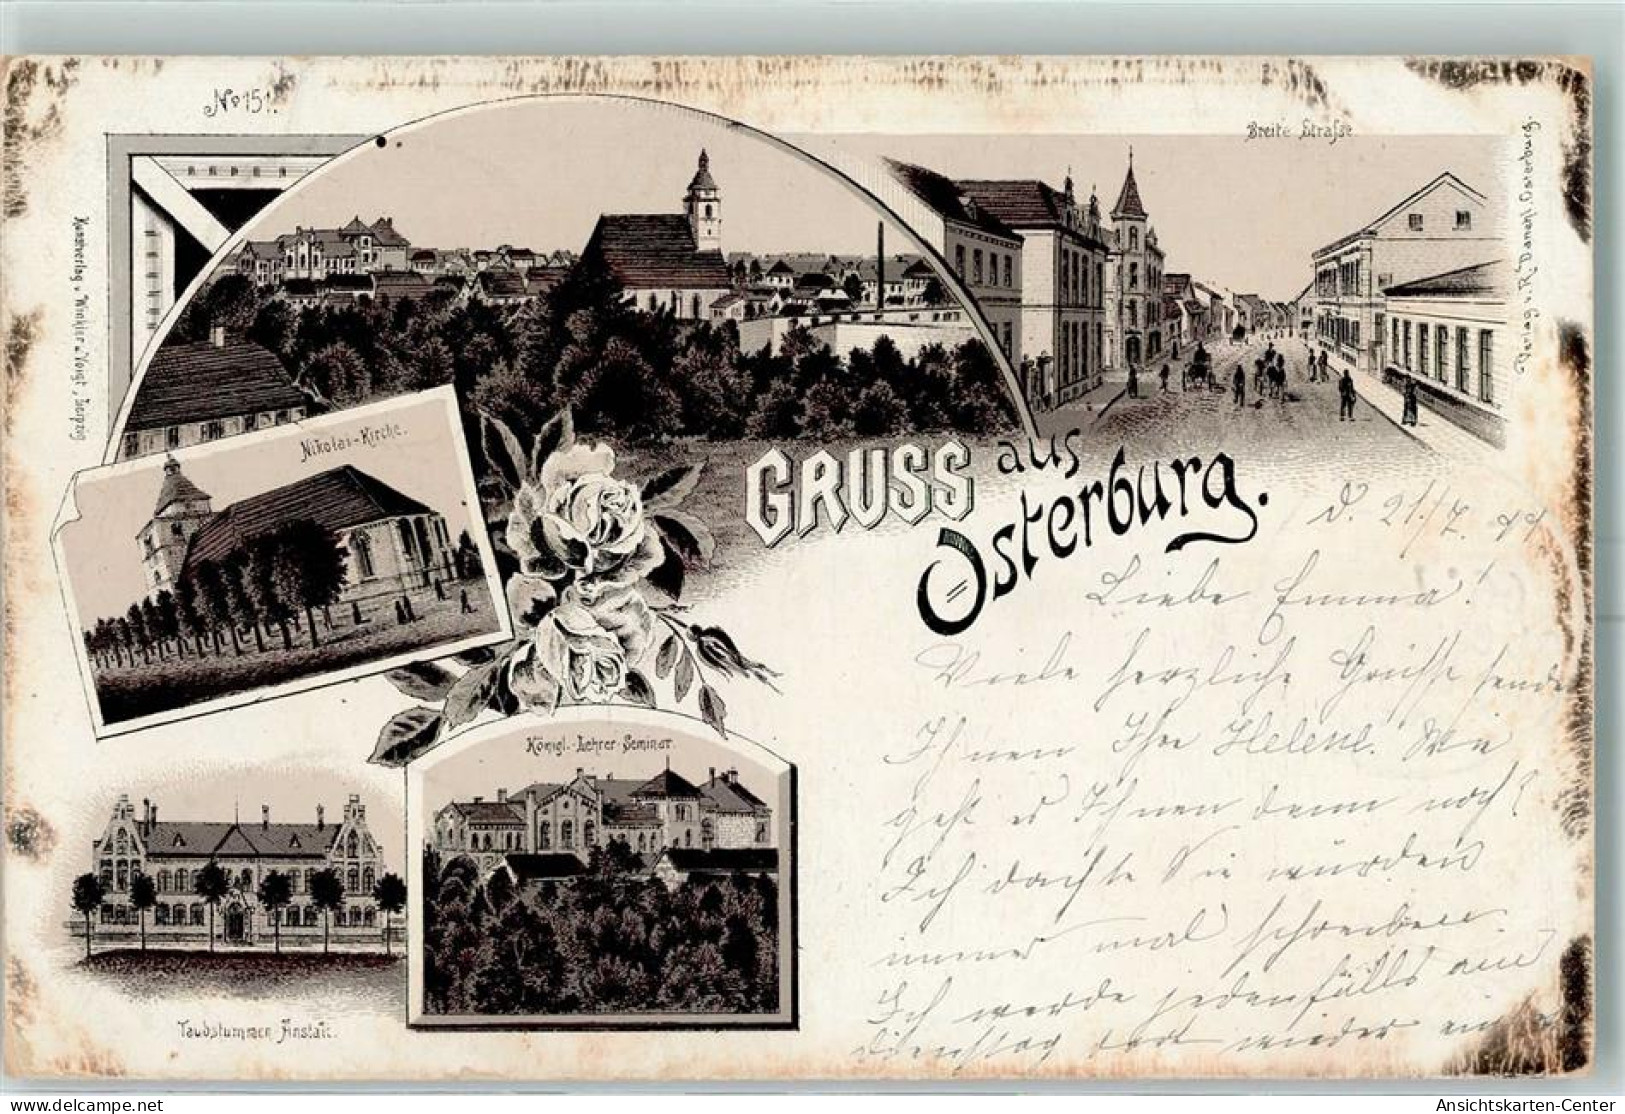 No 151.
Breite Straße.
Verlag v. R. Danehl, Osterburg.
Kunstverlag v. Winkler u. Voigt, Leipzig
Nikolai-Kirche.
GRUSS aus
Osterburg.
Königl. Lehrer-Seminar.
Taubstummen Anstalt.
d. 21./7. 99
Liebe Emma!
Viele herzliche Grüsse senden
Ihnen Ihre Helene. Wie
geht es Ihnen denn noch?
Ich dachte Sie würden
immer mal schreiben.
Ich werde jedenfalls am
Dienstag dort wieder
Ansichtskarten-Center